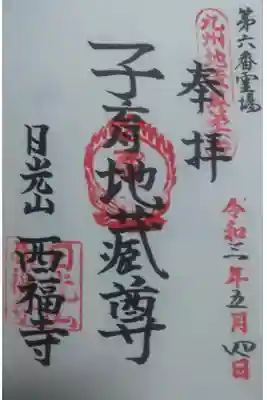 第六番霊場
奉拝
令和三年五月四日
子育地蔵尊
日光山
西福寺